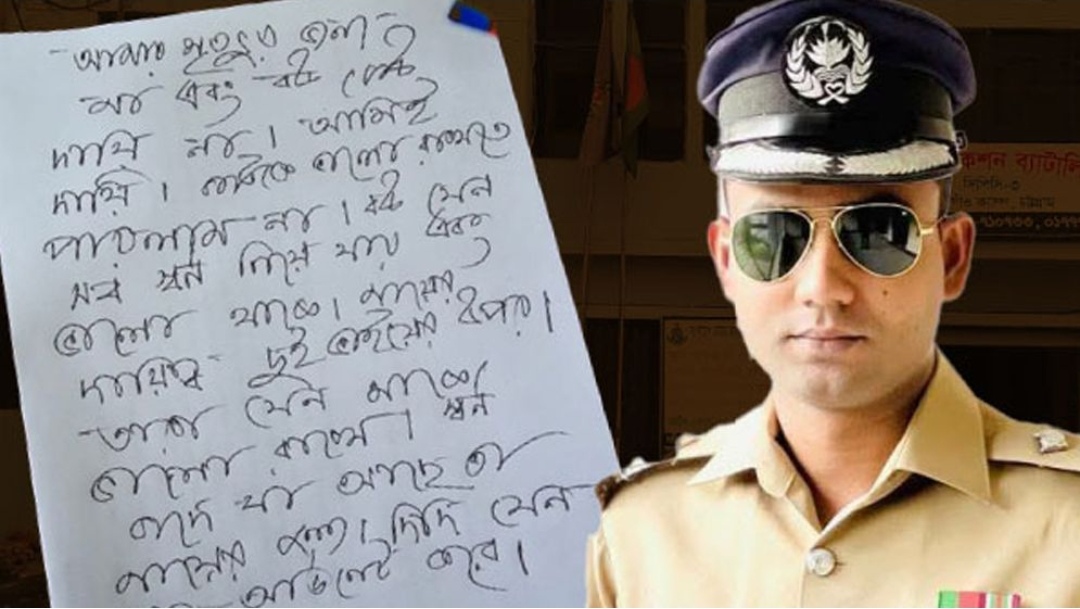 আমার মৃত্যুর জন্য
মা এবং বউ কেউ
দায়ি না। আমিই
দায়ি। কাউকে ভালো রাখতে
পারলাম না। বউ যেন
সব স্বর্ন নিয়ে যায় এবং
ভালো থাকে। মায়ের
দায়িত্ব দুই ভাইয়ের উপর।
তারা যেন মাকে
ভালো রাখে। স্বর্ন
বাদে যা আছে তা
মায়ের জন্য। দিদি যেন
কো-অর্ডিনেট করে।
কশন ব্যাটালি
সিপিসি-৩